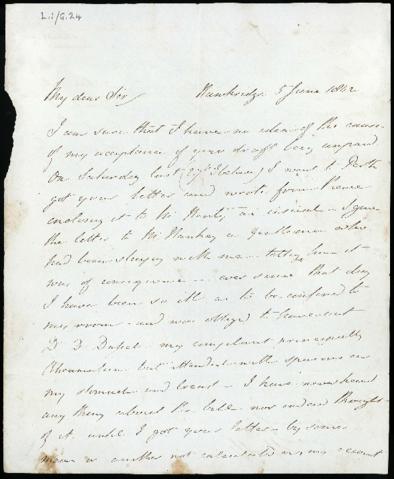 L.i/G.24
My dear Sir Hawkridge 5 June 1842
I am sure that I have no idea of the cause
of my acceptance of your draft being unpaid
On Saturday last I went to Perth
got your letter and wrote from thence
enclosing it to Mr an
the letter to Mr Hanhay a gentleman who
had been staying with me him it
was of consequence ever since that day
I have been so ill as to be confined to
my room and was obliged to
D. D. my complaint principally
Rheumatism but attended with spasms in
my stomach and breast I have
any thing about the bill nor indeed thought
of it until I got your letter by some
means or another not calculated in my account